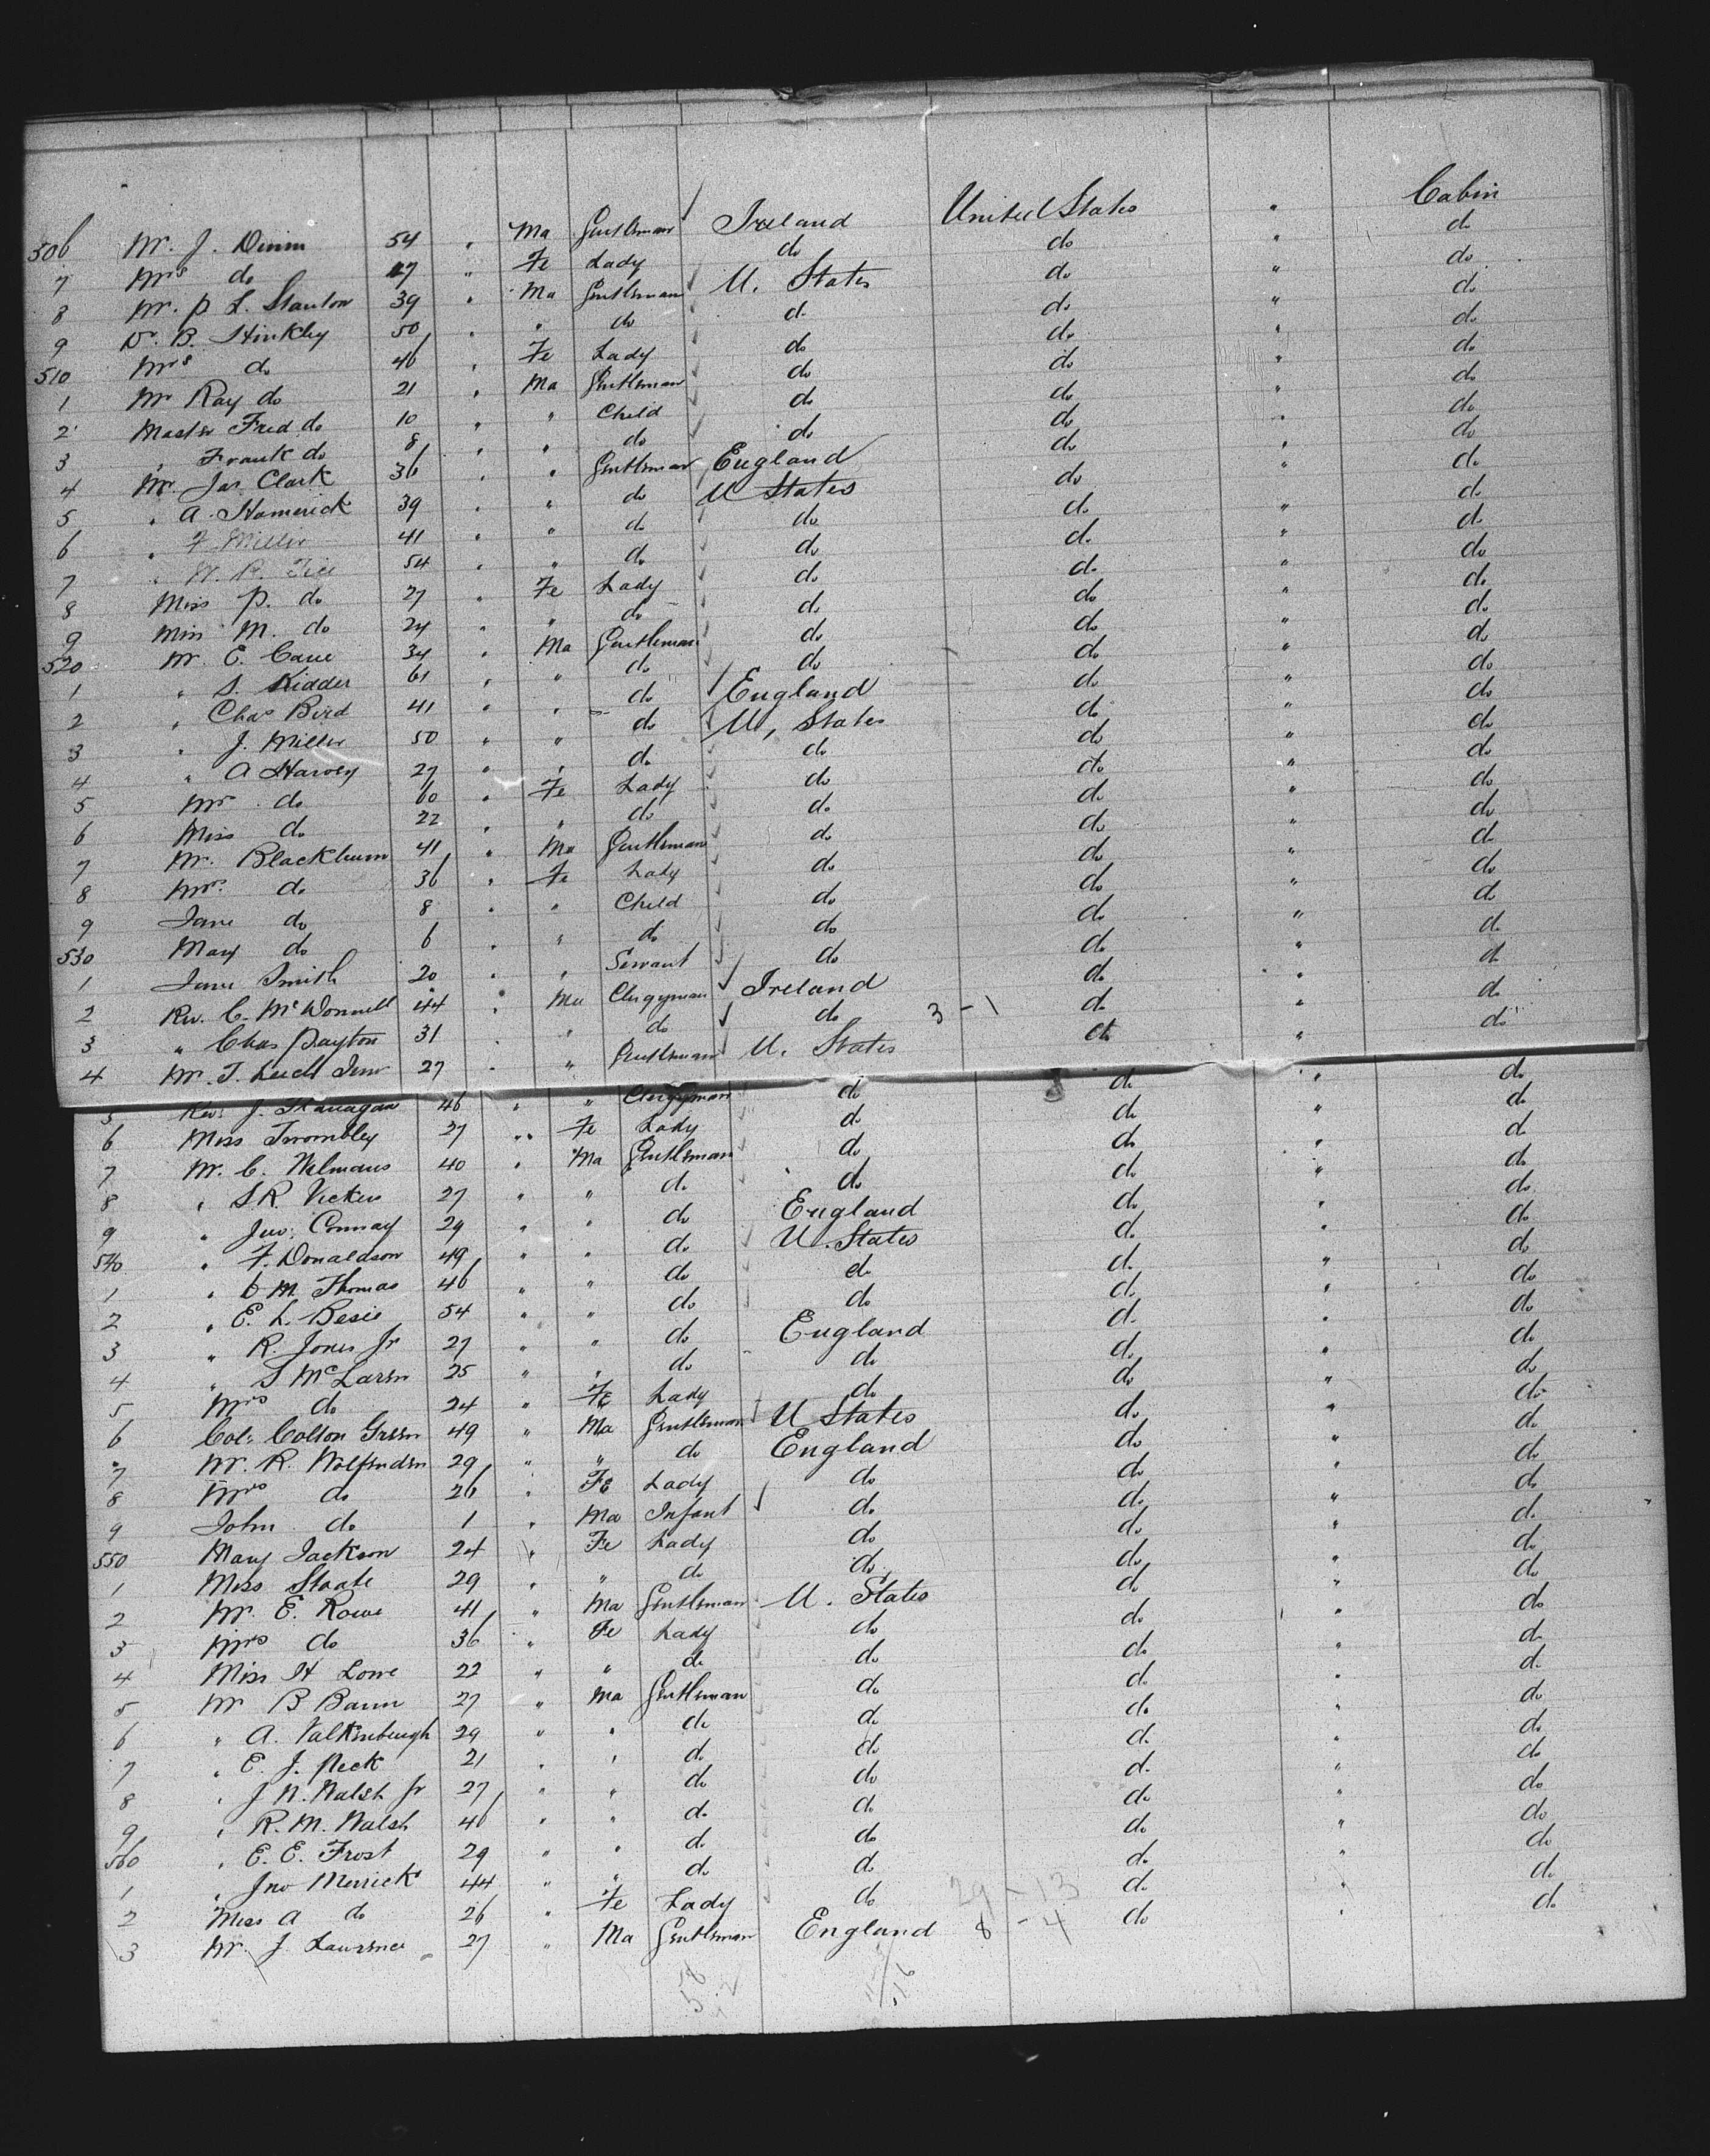 506 Mr. J. Dinin 54 " Ma Gentleman Ireland United States " Cabin
7 Mrs do 27 " Fe Lady do do " do
8 Mr. P L. Stanton 39 " Ma Gentleman U. States do " do
9 Dr. B. Hinkley 50 " " do do do " do
510 Mrs do 46 " Fe Lady do do " do
1 Mr Ray do 21 " Ma Gentleman do do " do
2 Master Fred do 10 " " Child do do " do
3 " Frank do 8 " " do do do " do
4 Mr. Jas. Clark 36 " " Gentleman England do " do
5 " A. Hamerick 39 " " do U States do " do
6 " F. Miller 41 " " do do do " do
7 " W. R. Tice 54 " " do do do " do
8 Miss P. do 27 " Fe Lady do do " do
9 Miss M. do 24 " " do do do " do
520 Mr. E. Cane 34 " Ma Gentleman do do " do
1 " S. Kidder 61 " " do do do " do
2 " Chas Bird 41 " " do England do " do
3 " J. Miller 50 " " do U, States do " do
4 " A Harvey 27 " " do do do " do
5 Mrs do 60 " Fe Lady do do " do
6 Miss do 22 " " do do do " do
7 Mr. Blackburn 41 " Ma Gentleman do do " do
8 Mrs. do 36 " Fe Lady do do " do
9 Jane do 8 " " Child do do " do
530 Mary do 6 " " do do do " do
1 Jane Smith 20 " " Servant do do " do
2 Rev. C. McDonnell 44 " Ma Clergyman Ireland do " do
3 " Chas Dayton 31 " " do do 3 - 1 do " do
4 Mr. T. Leech Jenr 27 " " Gentleman U. States do " do
5 Rev. J. Flanagan 46 " " Clergyman do do " do
6 Miss Trombley 27 " Fe Lady do do " do
7 Mr. C. Wilmans 40 " Ma Gentleman do do " do
8 " S.R. Vickers 27 " " do do do " do
9 " Jno. Connay 29 " " do England do " do
540 " F. Donaldson 49 " " do U. States do " do
1 " C M. Thomas 46 " " do do do " do
2 " E. L. Besie 54 " " do do do " do
3 " R. Jones Jr 27 " " do England do " do
4 " S McLaren 25 " " do do do " do
5 Mrs do 24 " Fe Lady do do " do
6 Col. Colton Green 49 " Ma Gentleman U States do " do
7 Mr. R. Wolfenden 29 " " do England do " do
8 Mrs do 26 " Fe Lady do do " do
9 John do 1 " Ma Infant do do " do
550 Mary Jackson 24 " Fe Lady do do " do
1 Miss Staate 29 " " do do do " do
2 Mr. E. Rowe 41 " Ma Gentleman U. States do " do
3 Mrs do 36 " Fe Lady do do " do
4 Miss H Lowe 22 " " do do do " do
5 Mr B Baum 27 " Ma Gentleman do do " do
6 " A. Valkenburgh 29 " " do do do " do
7 " E. J. Peck 21 " " do do do " do
8 " J. N. Walsh Jr 27 " " do do do " do
9 " R. M. Walsh 46 " " do do do " do
560 " E. E. Frost 29 " " do do do " do
1 " Jno Merrick 44 " " do do do " do
2 Miss A do 26 " Fe Lady do 29 - 13 do " do
3 Mr. J. Lawrence 27 " Ma Gentleman England 8 - 4 do " do
58